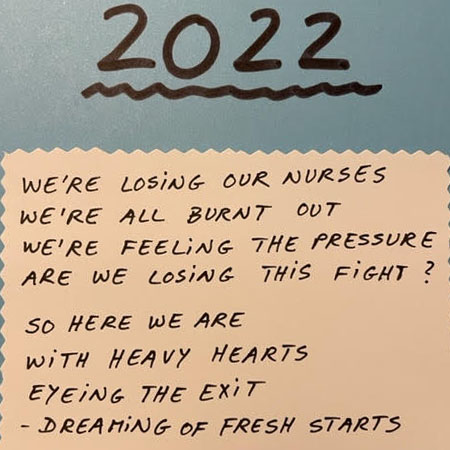 2022
WE'RE LOSING OUR NURSES
WE'RE ALL BURNT OUT
WE'RE FEELING THE PRESSURE
ARE WE LOSING THIS FIGHT?
SO HERE WE ARE
WITH HEAVY HEARTS
EYEING THE EXIT
- DREAMING OF FRESH STARTS